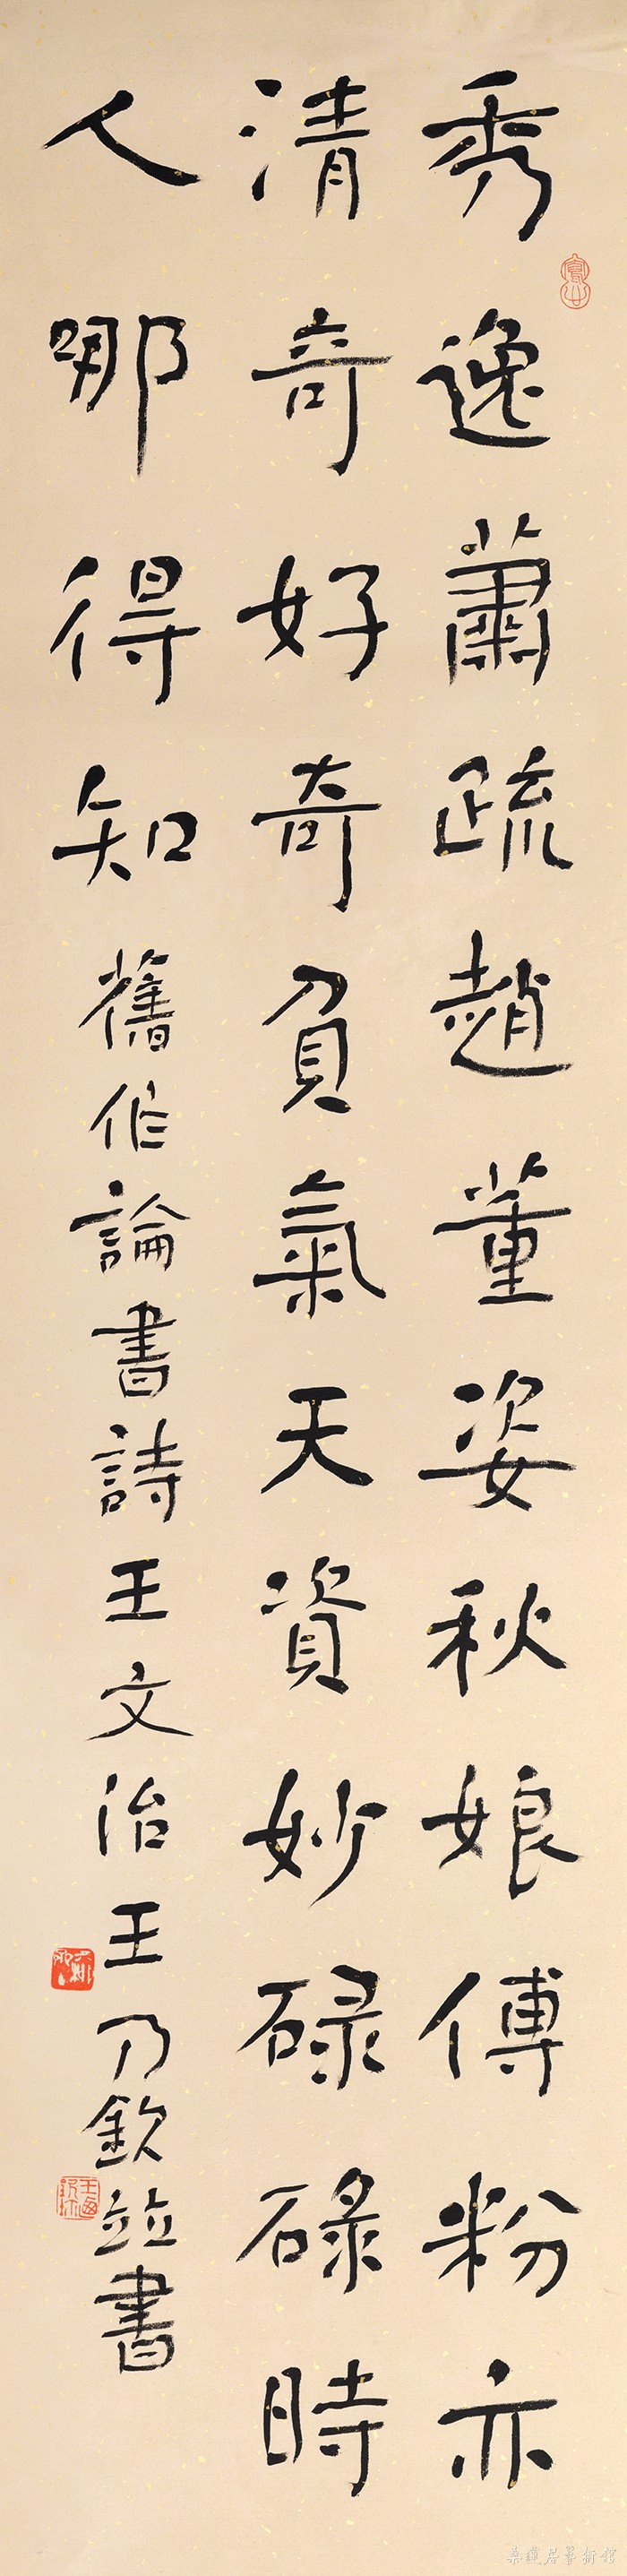 秀逸蕭疏趙董姿秋娘傅粉亦
清奇好奇負氣天資妙碌碌時
人哪得知
舊作論書詩王文治王乃欽並書